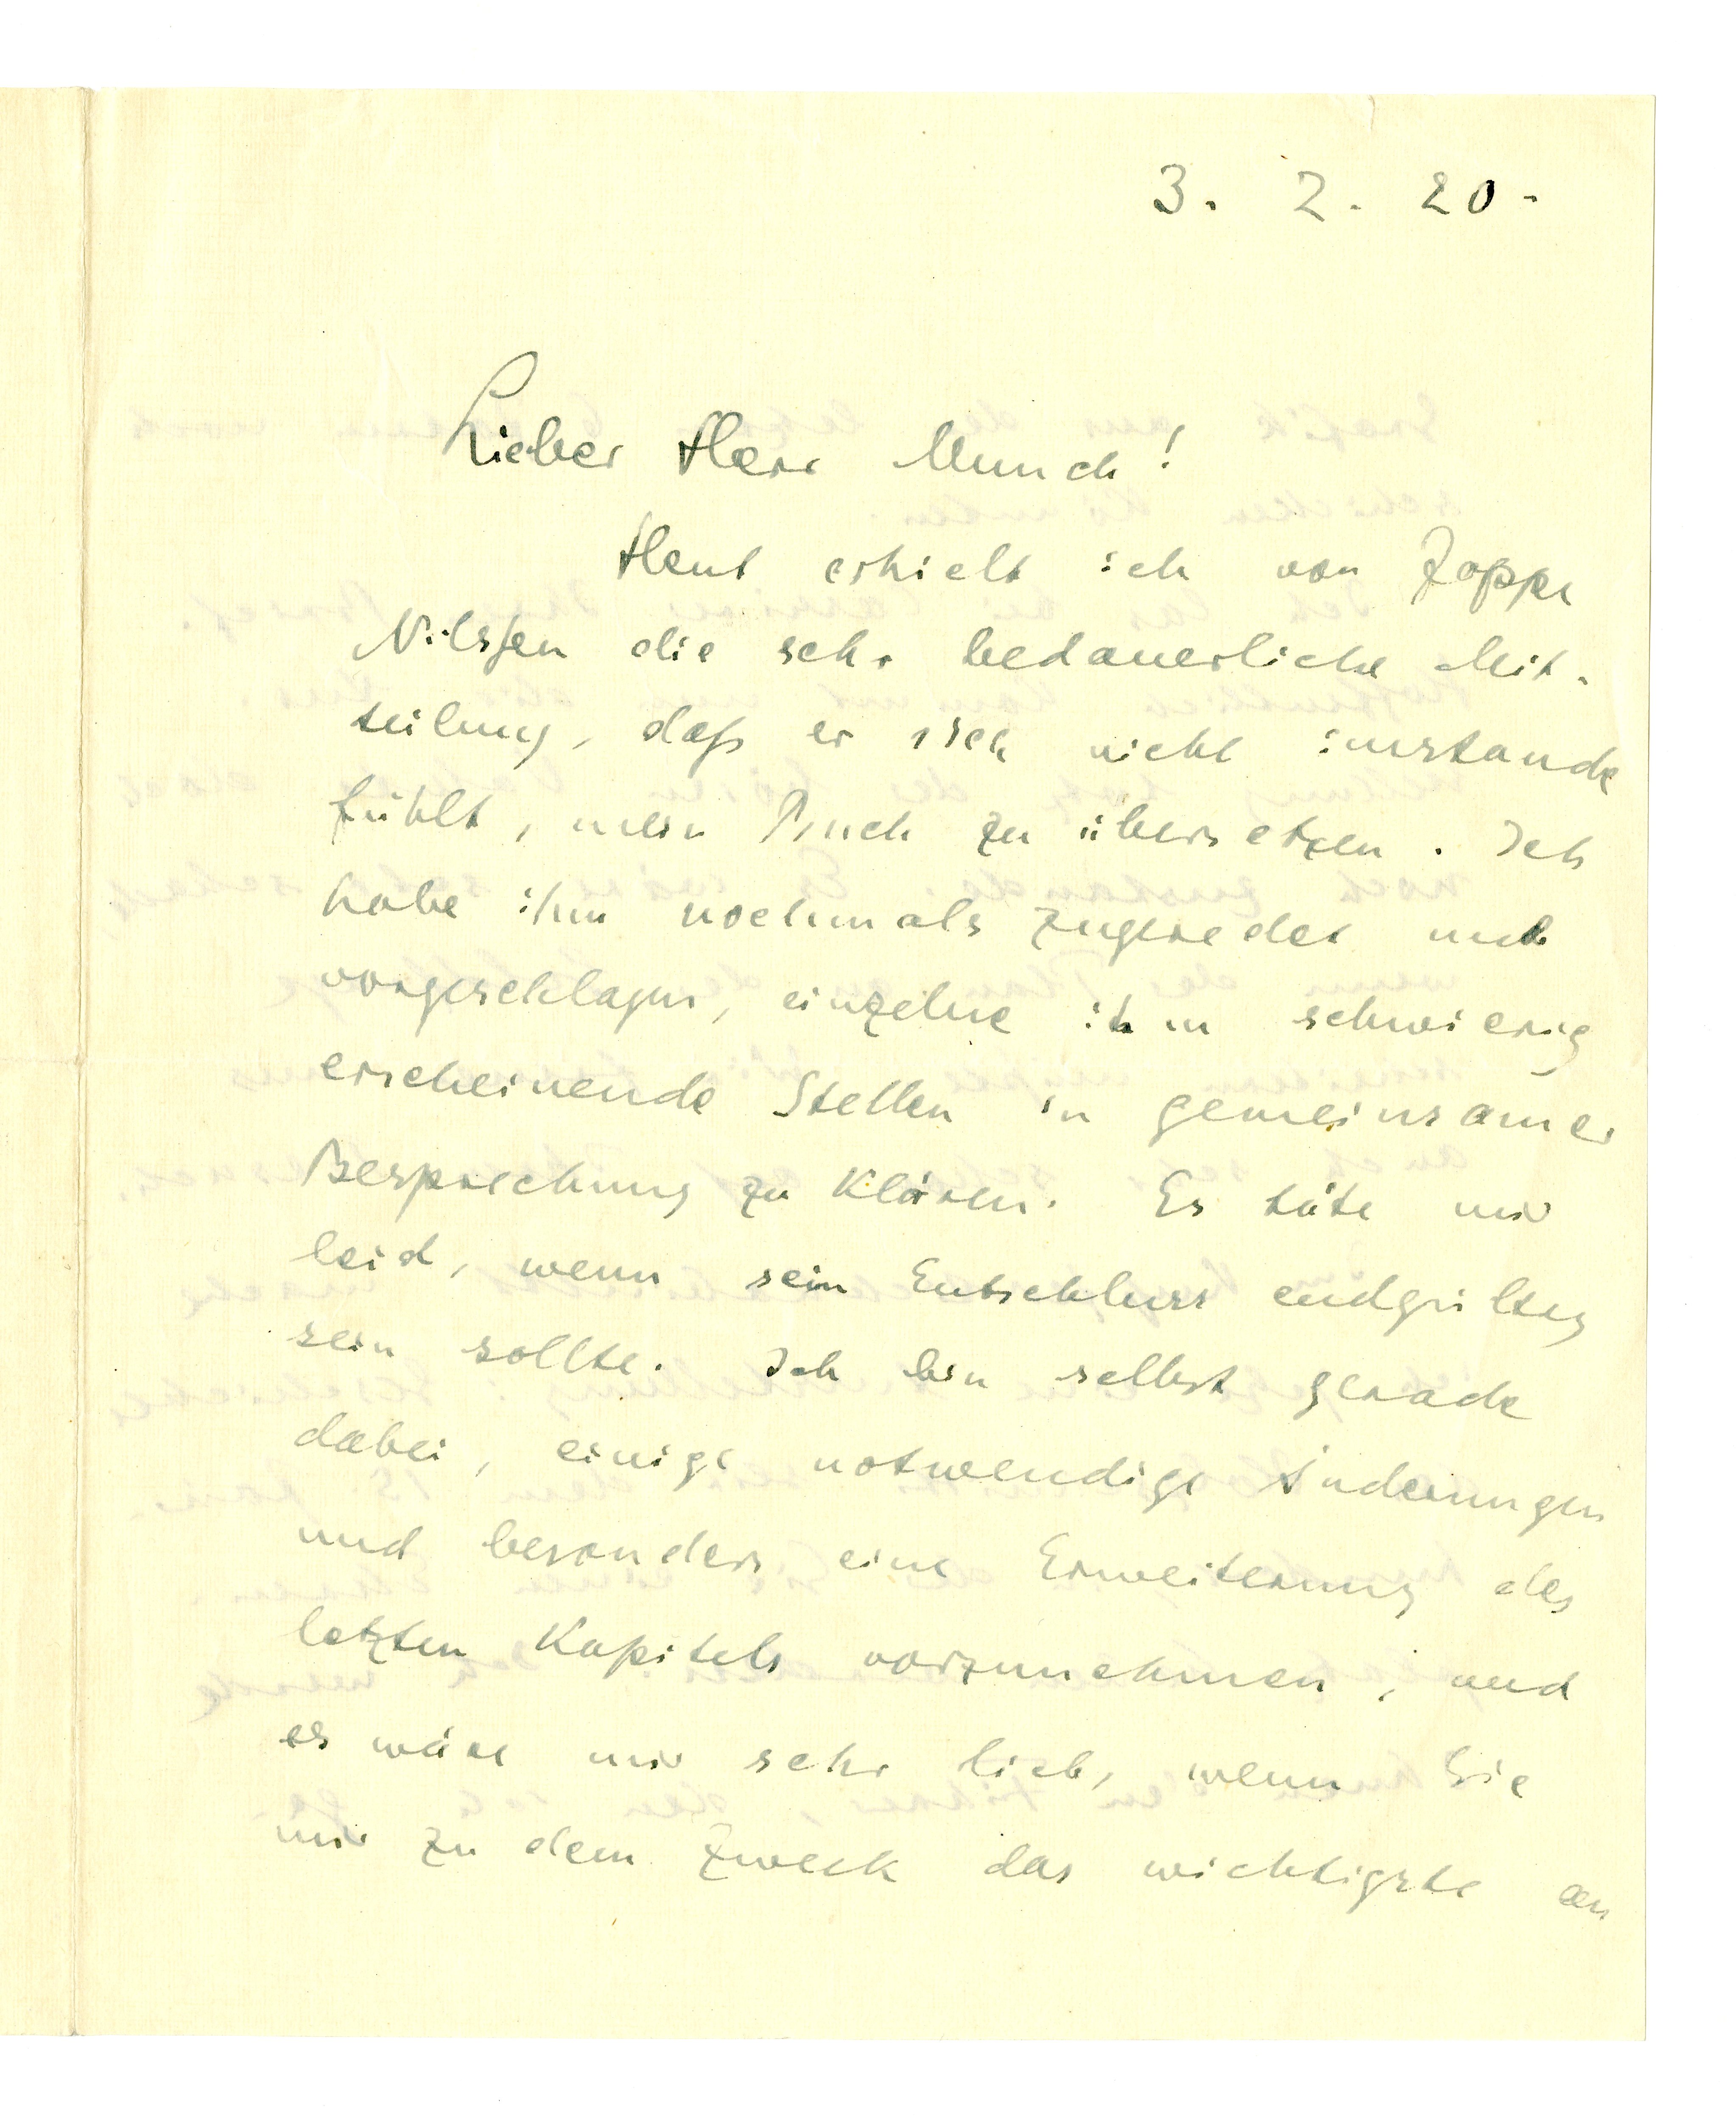 3. 2. 20.
Lieber Herr Munch!
Heut erhielt ich von Jappe
Nilssen die sehr bedauerliche Mit-
teilung, daß er sich nicht imstande
fühlt, mein Buch zu übersetzen. Ich
habe ihm nochmals zugeredet und
vorgeschlagen, einzelne ihm schwierig
erscheinende Stellen in gemeinsamer
Besprechung zu klären. Es täte mir
leid, wenn sein Entschluss endgültig
sein sollte. Ich bin selbst gerade
dabei, einige notwendige Änderungen
und besonders eine Erweiterung des
letzten Kapitels vorzunehmen, und
es wäre mir sehr lieb, wenn Sie
mir zu dem Zweck das wichtigste an